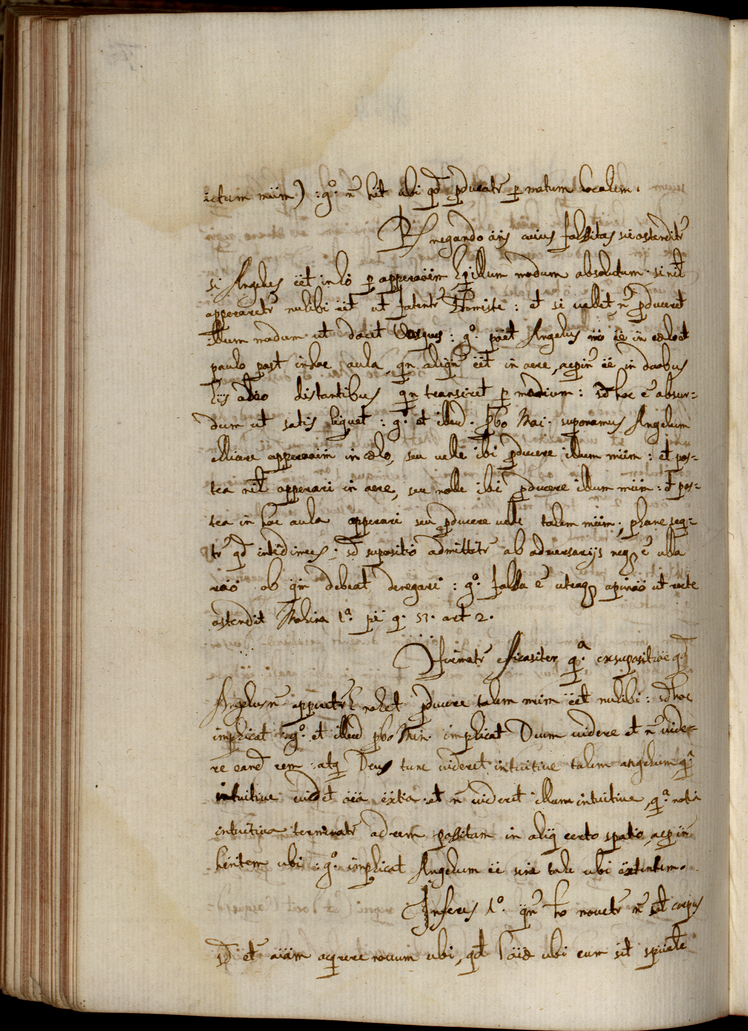 ictum miim) : g.º n̄ hēt ubi qd̄ pducatr p motum localem.
R negando ans cuius falsitas sic ostenditr
si Angelus eēt in lo p apperaoīm l illum modum absolutum si nīl
appararetr nullibi eēt ut fatentr Thomiste : et si uellet n̄ pduceret
illum modum ut docet Vasques : g.º poēt Angelus ee in coelo et
paulo post in hac aula, qn aliqn eēt in aere, ac pin ee in duobus
lis adeo distantibus qn transiret p medium : sd hoc ē absur-
dum ut satis liquet : g.º et illud. pbo Mai. suponamus Angelum
elliare apperaoīm in coelo, seu uelle ibi pducere illum miim : et pos-
tea nīl apperari in aere, seu nolle ibi pducere illum miim : et pos-
tea in hac aula apperari seu pducere uelle talem miim. plane seqi-
tr qd intedimus ; sd supositio admittetr ab adversarijs neq ē ulla
raō ob qm debeat denegari : g.º falsa ē utraq opinaō ut recte
ostendit Molina 1.ª pe q. 53. art 2.
Cfirmatr efficasiter q.ª ex supositioe qd
Angelus n̄ apparetr l nolet pducere talem miim eēt nullibi : sd hoc
implicat : g.º et illud pbo Min. implicat Deum uidere et n̄ uide-
re eand rem. atq Deus tunc uideret intuitive talem angelum, q.ª
intuitive uidet oia extia. et n̄ uideret illum intuitive, q.ª notia
intuitiva terminatr ad rem positam in aliq certo spatio, ac pin
hentem ubi : g.º implicat Angelum ee sine tale ubi extintem.
Inferes 1.º qn ho mouetr n̄ corpus
sd et aiam acqrere nouum ubi, qd ubi cum sit spūale